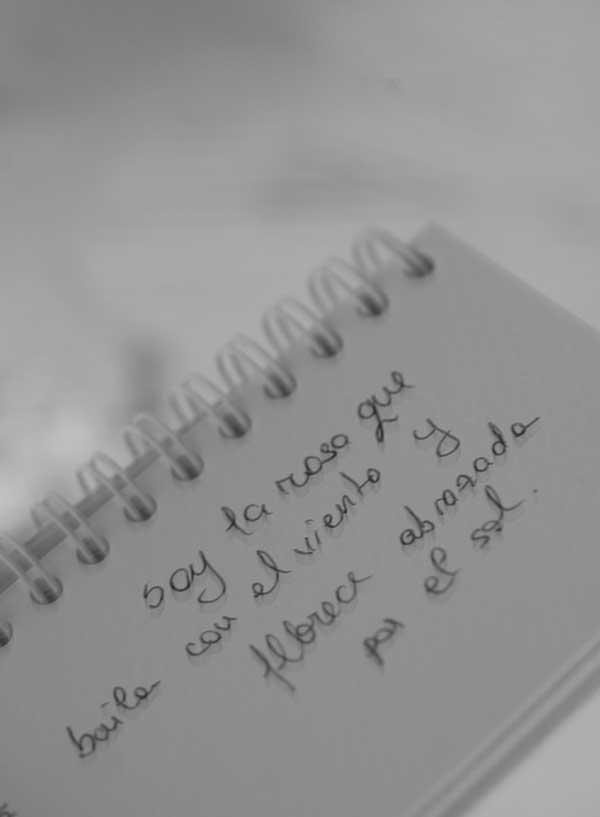 soy la rosa que
baila con el viento y
florece abrazada
por el sol.